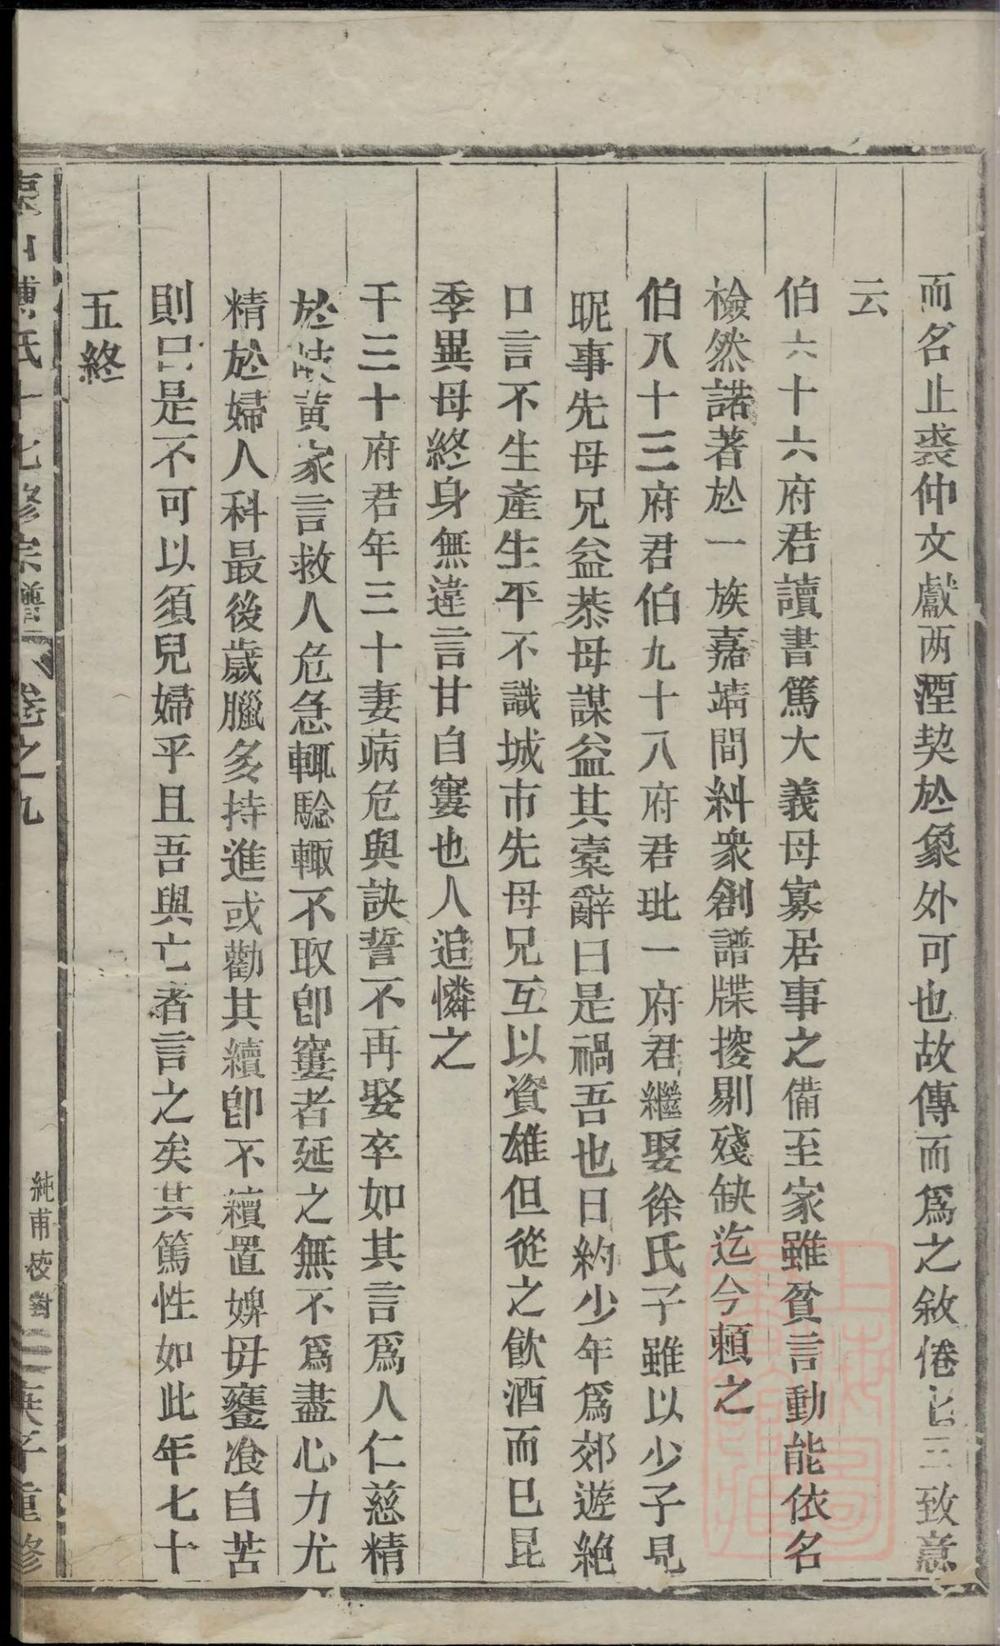 而名止裘仲文獻两湮契於象外可也故傳而爲之敘倦三致意
云
伯六十六府君讀書篤大義母寡居事之備至家雖貧言動能依名
檢然諾著於一族嘉靖間糾衆創譜牒搜剔殘缺迄今頼之
伯八十三府君伯九十八府君玭一府君繼娶徐氏子雖以少子見
昵事先母兄益恭母謀益其橐辭曰是禍吾也日約少年爲郊遊絶
口言不生產生平不識城市先母兄互以資雄但從之飲酒而已昆
季異母終身無違言甘自窶也人追憐之
干三十府君年三十妻病危與訣誓不再娶卒如其言爲人仁慈精
於岐黃家言救人危急輒騐輙不取卽窶者延之無不爲盡心力尤
精於婦人科最後歲臘多持進或勸其續卽不續置婢毋饔飧自苦
則曰是不可以須兒婦乎且吾與亡者言之矣其篤性如此年七十
五終
氏十七修宗譜 卷之九 純甫校對 重修